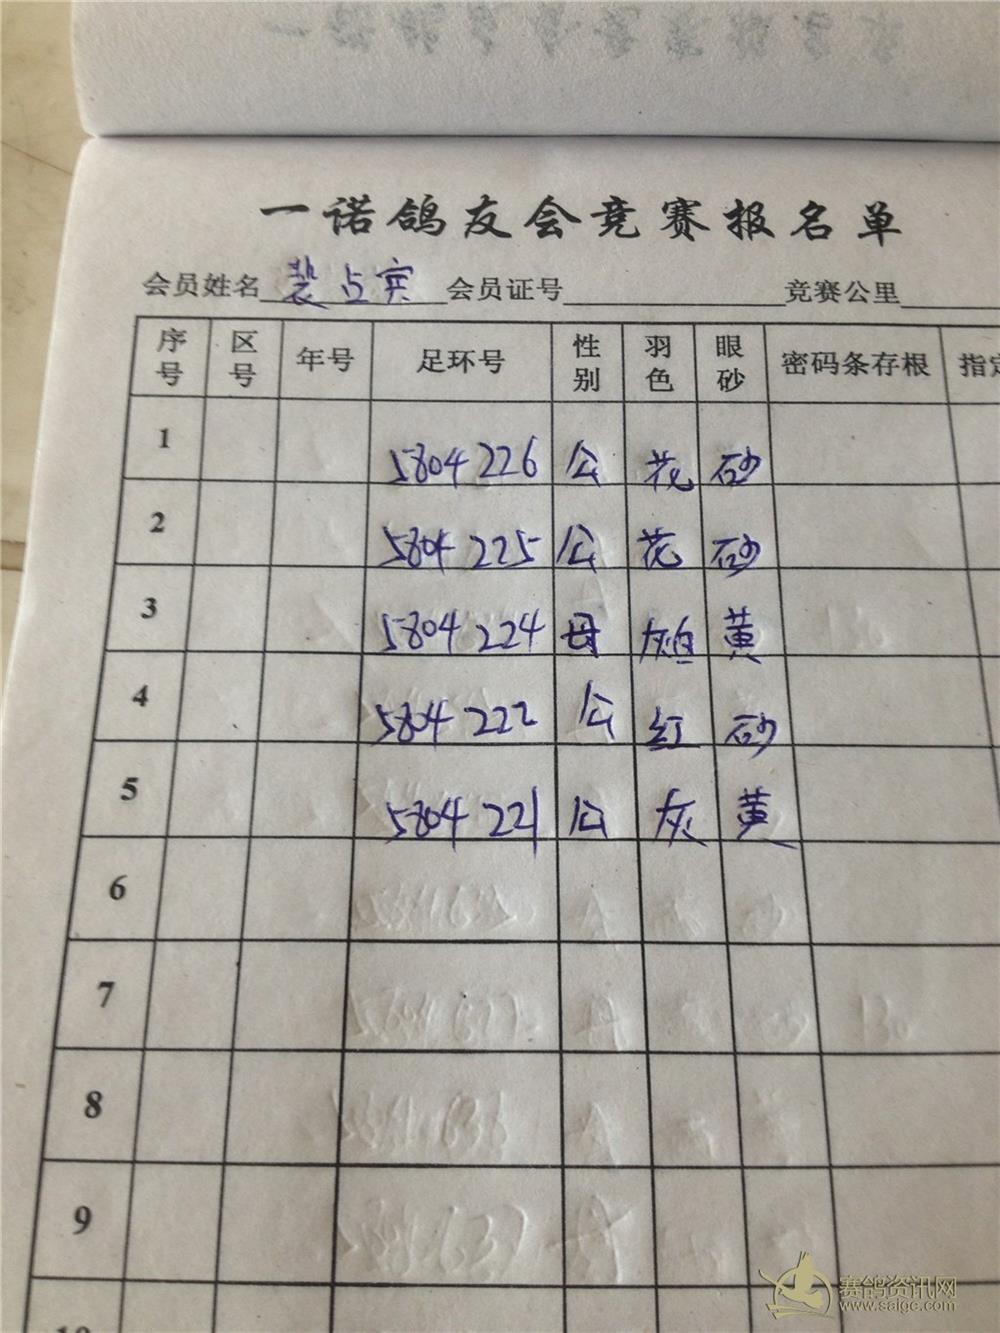 一诺鸽友会竞赛报名单
会员姓名 裴占宾 会员证号 竞赛公里
序号 区号 年号 足环号 性别 羽色 眼砂 密码条存根 指定
1 5804226 公 花 砂
2 5804225 公 花 砂
3 5804224 母 灰白 黄
4 5804222 公 红 砂
5 5804221 公 灰 黄
6
7
8
9
10
赛鸽资讯网
www.saigc.com